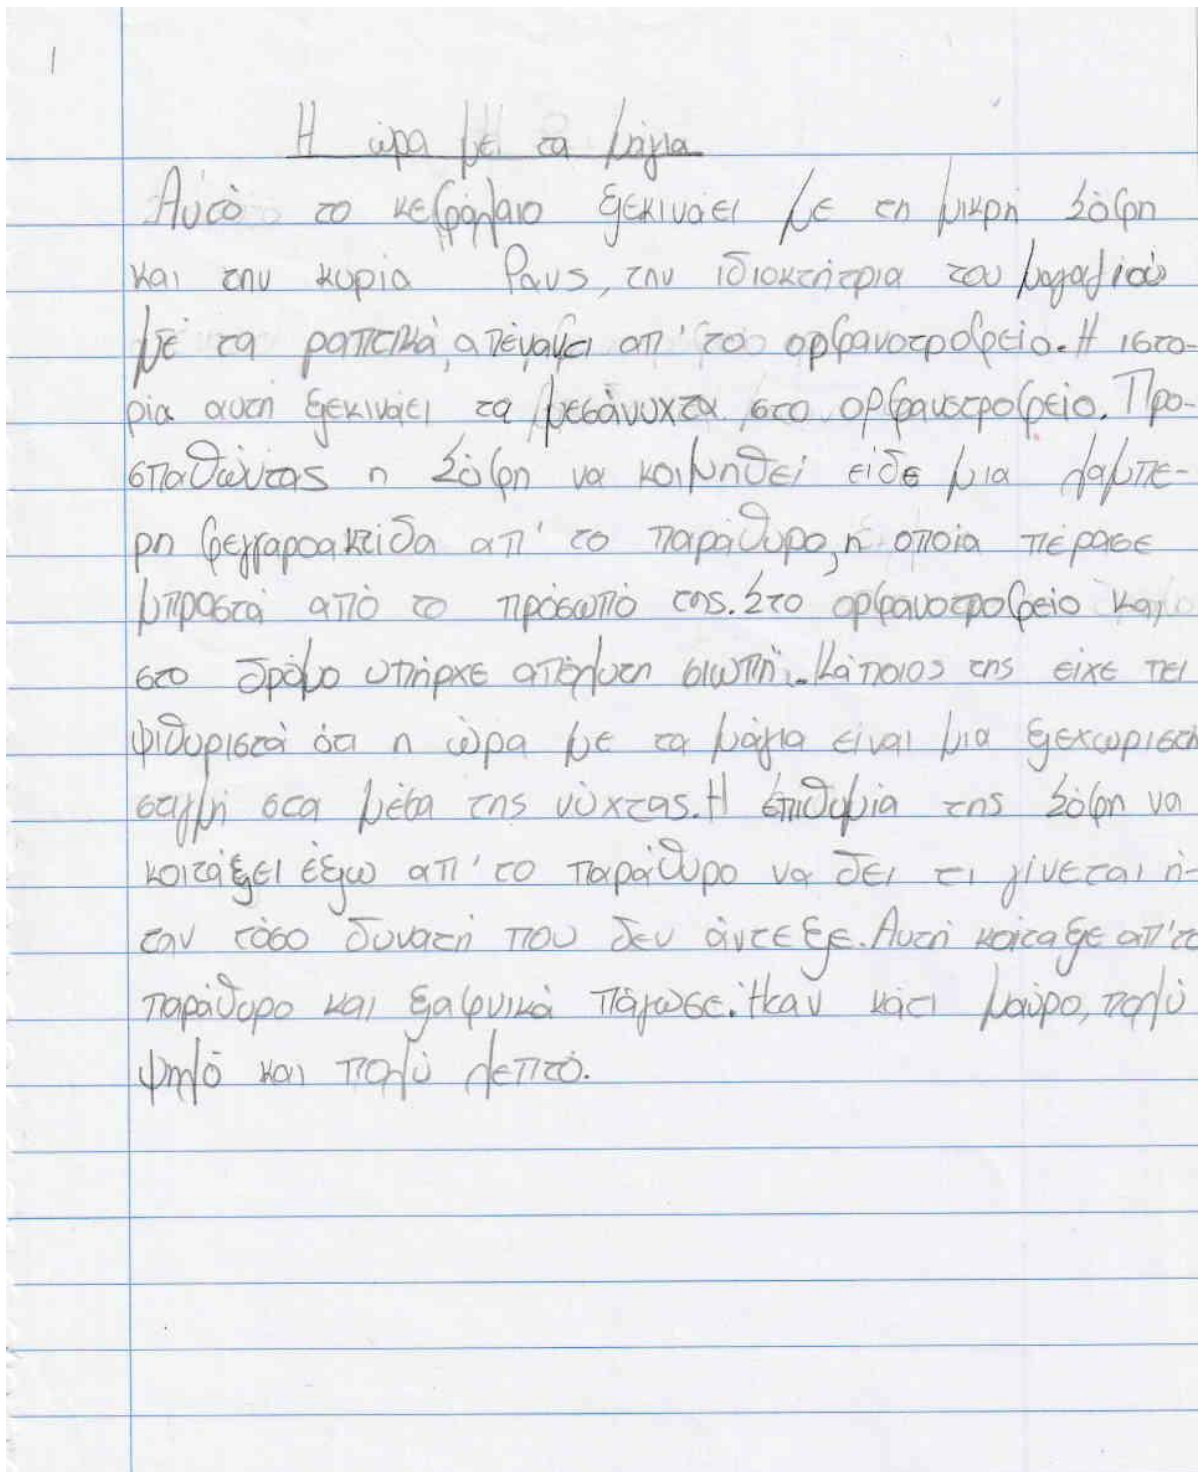 1
Η ώρα μει τα μάγια
Αυτό το κεφάλαιο ξεκινάει με τη μικρή Σόφη
και την κυρία Ρανς, την ιδιοκτήτρια του μαγαζιού
με τα ραπτικά, απέναντι απ' το ορφανοτροφείο. Η ιστο-
ρία αυτή ξεκινάει τα μεσάνυχτα στο ορφανοτροφείο. Προ-
σπαθώντας η Σόφη να κοιμηθεί είδε μια λαμπε-
ρη φεγγαροακτίδα απ' το παράθυρο, η οποία πέρασε
μπροστά από το πρόσωπό της. Στο ορφανοτροφείο και
στο δρόμο υπήρχε απόλυτη σιωπή. Κάποιος της είχε πει
ψιθυριστά ότι η ώρα με τα μάγια είναι μια ξεχωριστή
στιγμή στα μέσα της νύχτας. Η επιθυμία της Σόφη να
κοιτάξει έξω απ' το παράθυρο να δει τι γίνεται ή-
ταν τόσο δυνατή που δεν άντεξε. Αυτή κοίταξε απ' το
παράθυρο και ξαφνικά πάγωσε. Ήταν κάτι μαύρο, πολύ
ψηλό και πολύ λεπτό.